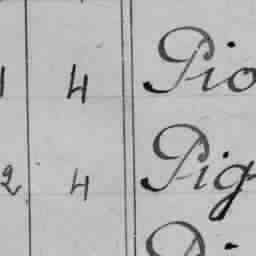 1 4 Pio
2 4 Pig